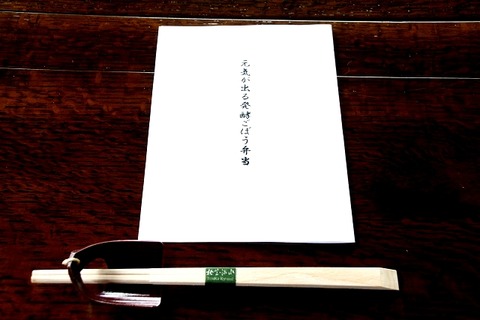 元気が出る発酵ごぼう弁当